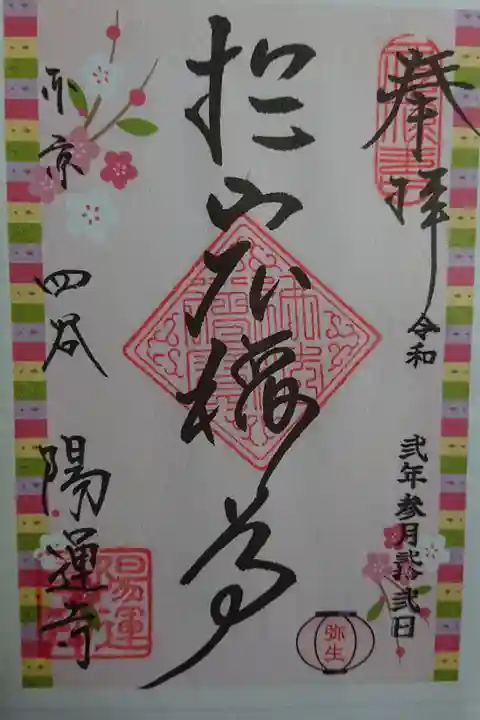 奉拝
令和
弐年参月弐拾弐日
於岩稲荷
東京 四谷 陽運寺
弥生
陽運